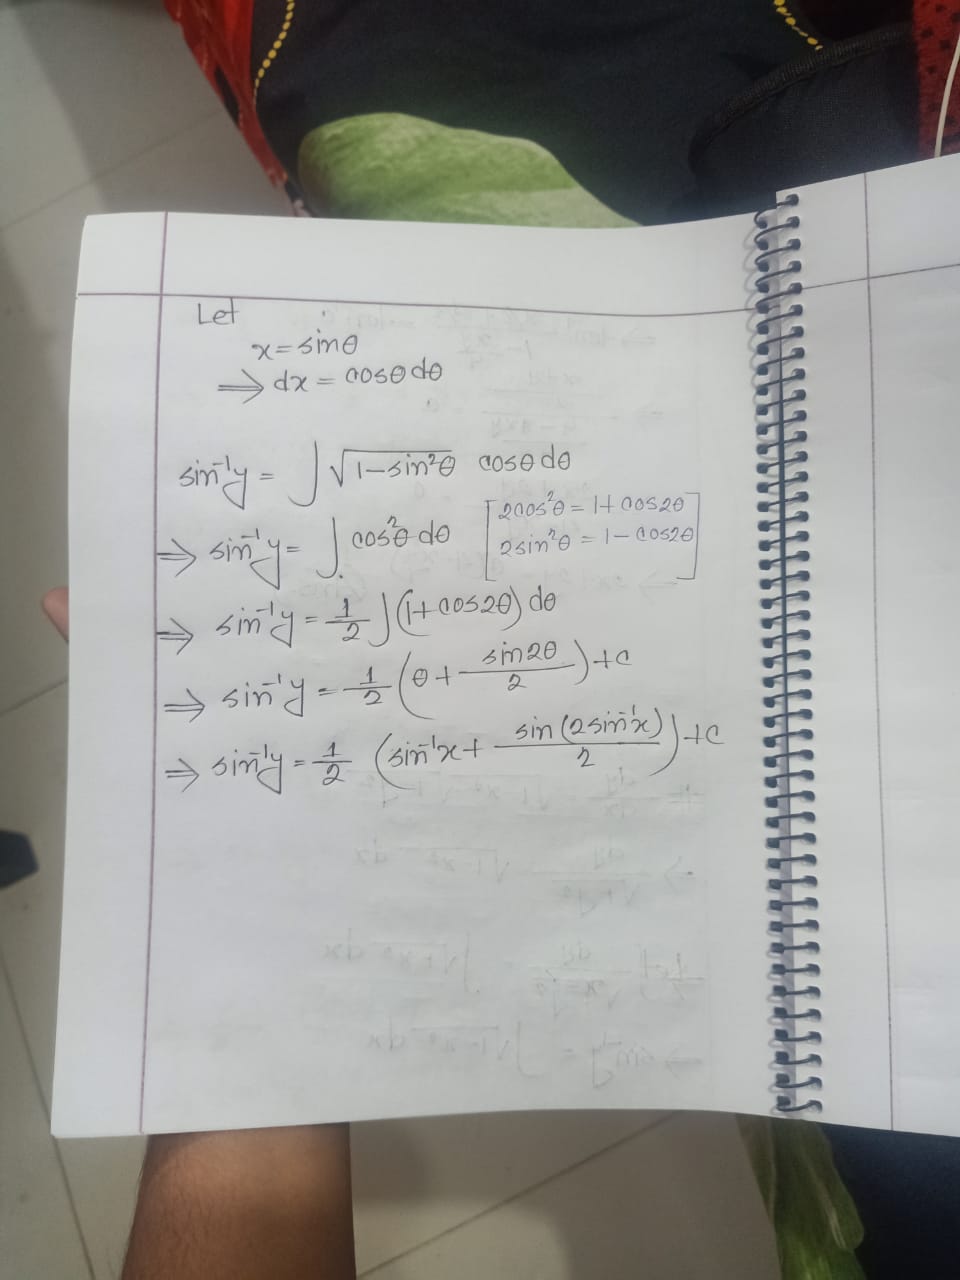 Let
x = sinθ
⇒ dx = cosθ dθ
sin⁻¹y = ∫ √(1−sin²θ) cosθ dθ
⇒ sin⁻¹y = ∫ cos²θ dθ [2cos²θ = 1+cos2θ
2sin²θ = 1−cos2θ]
⇒ sin⁻¹y = 1/2 ∫(1+cos2θ) dθ
⇒ sin⁻¹y = 1/2 (θ + sin2θ/2) + c
⇒ sin⁻¹y = 1/2 (sin⁻¹x + sin(2sin⁻¹x)/2) + c